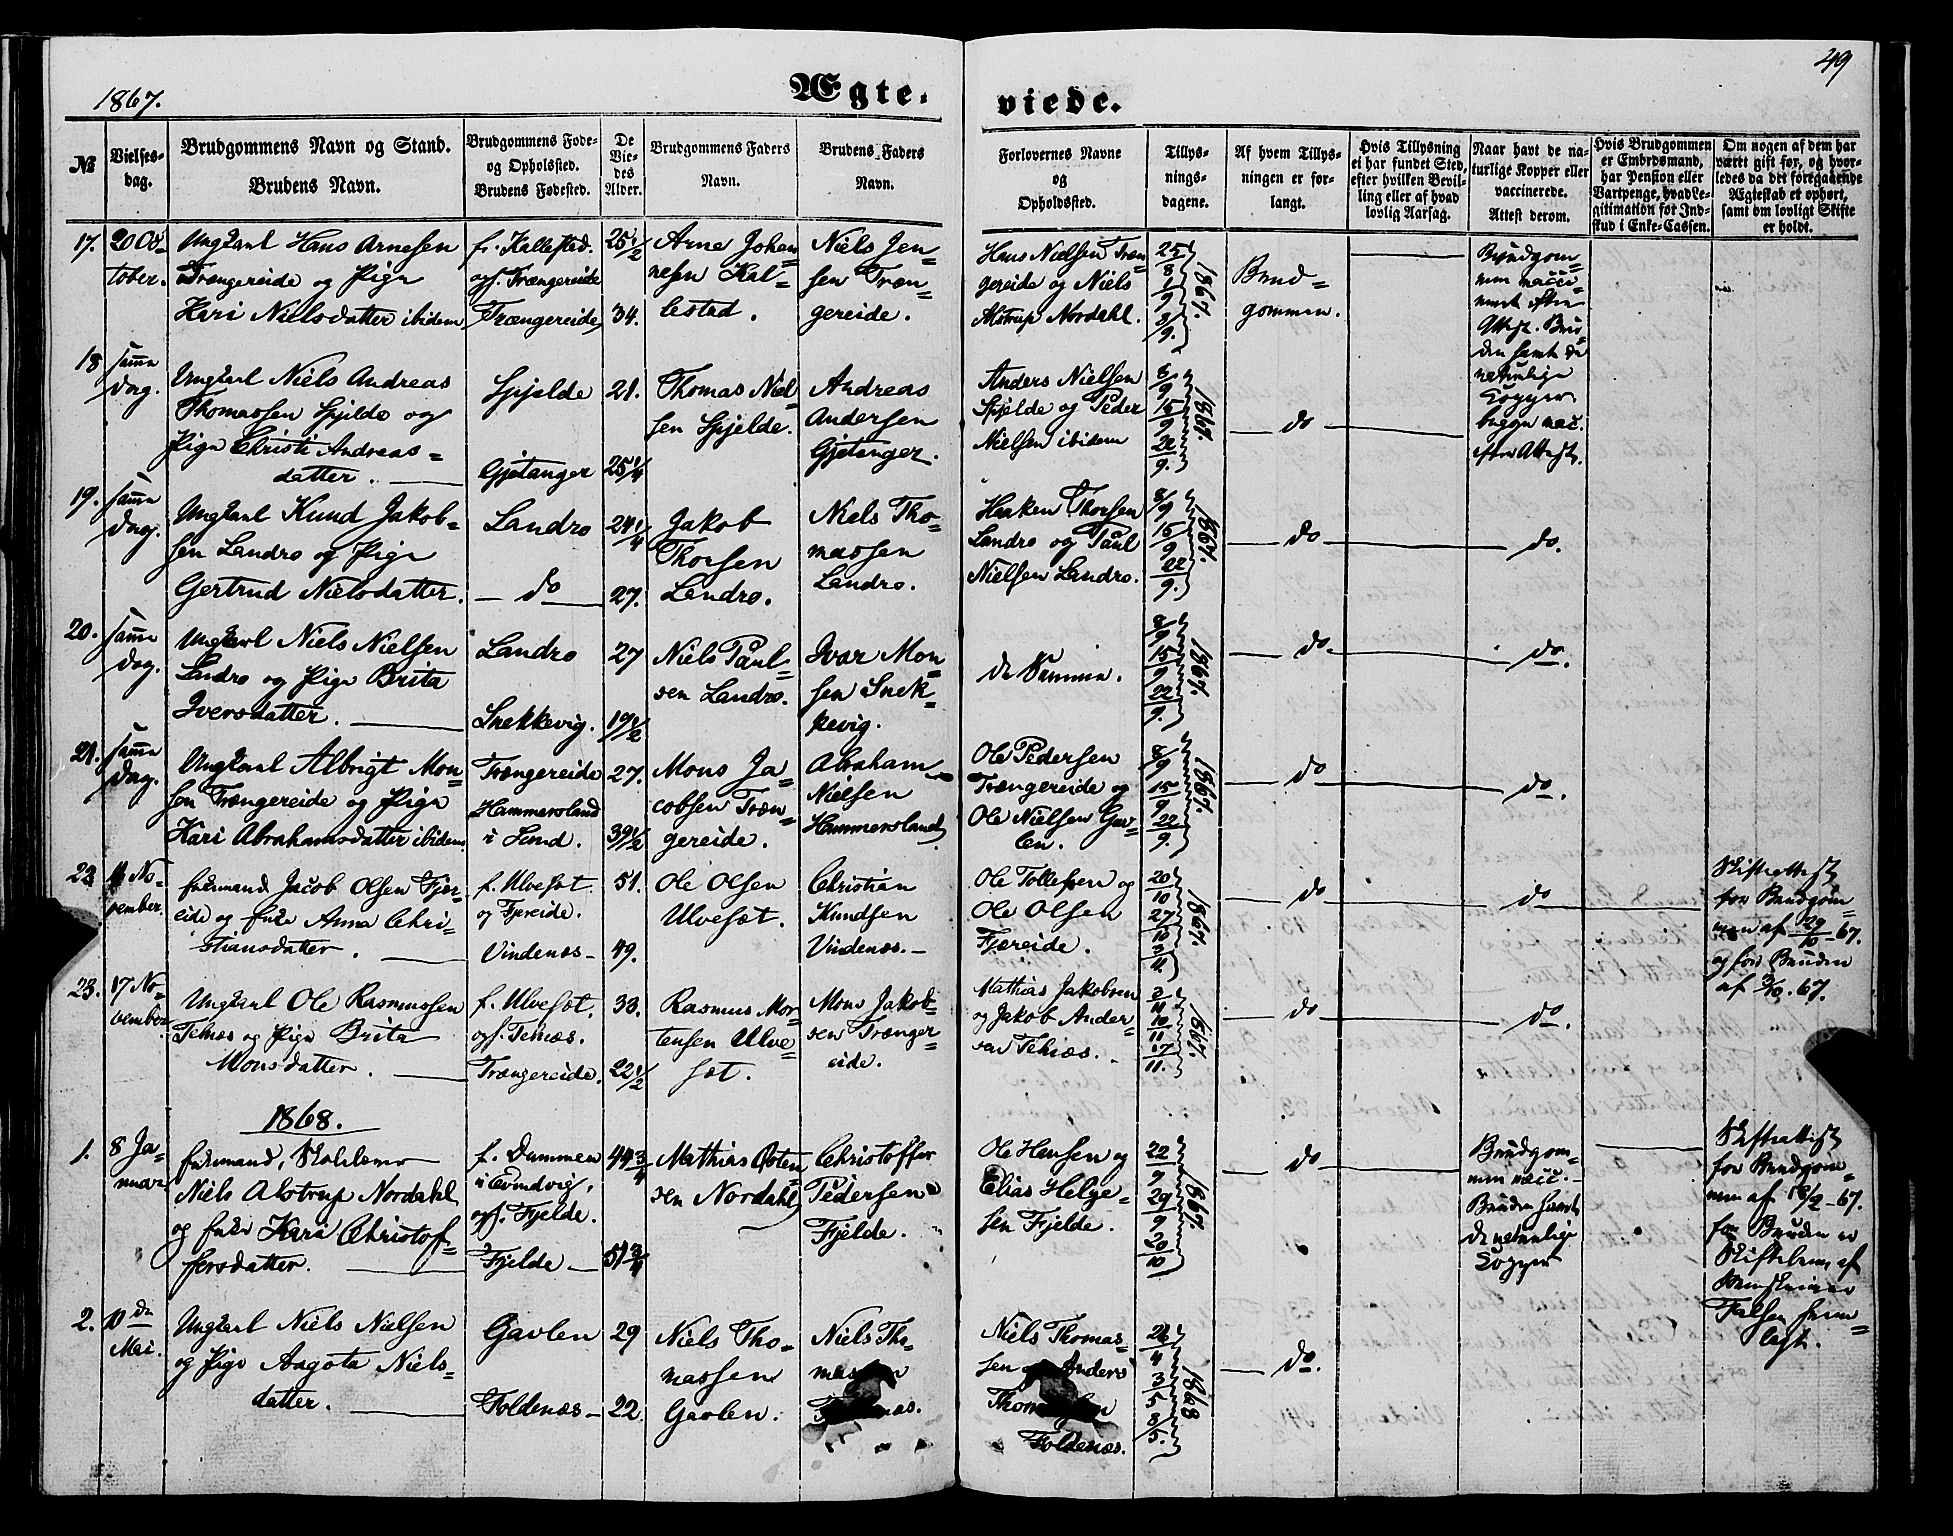 1867.
Ægte-
viede.
49
№
Vielses-
dag.
Brudgommens Navn og Stand.
Brudens Navn.
Brudgommens Føde-
og Opholdssted.
Brudens Fødested.
De
Vie-
des
Alder.
Brudgommens Faders
Navn.
Brudens Faders
Navn.
Forlovernes Navne
og
Opholdssted.
Tillys-
nings-
dagene.
Af hvem Tillys-
ningen er for-
langt.
Hvis Tillysning
ei har fundet Sted,
efter hvilken Bevil-
ling eller af hvad
lovlig Aarsag.
Naar havt de na-
turlige Kopper eller
vaccinerede.
Attest derom.
Hvis Brudgommen
er Embedsmand,
har Pension eller
Vartpenge, hvad Le-
gitimation for Ind-
skud i Enke-Cassen.
Om nogen af dem har
været gift før, og hvor-
ledes da det foregaaende
Ægteskab et ophørt,
samt om lovligt Skifte
er holdt.
17.
20 Oc-
tober.
Ungkarl Hans Arnesen
Trængereide og Pige
Kari Nielsdatter ibidem
f. Kallestad.
opf. Trængereide
Trængereide
25 1/2
34.
Arne Johan-
nesen Kal-
lestad.
Niels Jen-
sen Træn-
gereide.
Hans Nielsen Træn
gereide og Niels
Alstrup Nordahl.
25/8 1/9 8/9. 1867.
Brud-
gommen.
Brudgom-
men vacci-
neret efter
Attest. Bru-
den havt de
naturlige
Kopper
18
samme
Dag.
Ungkarl Niels Andreas
Thomassen Spjelde og
Pige Christi Andreas-
datter.
Spjelde
Gjetanger
21.
25 1/4
Thomas Niel-
sen Spjelde.
Andreas
Andersen
Gjetanger.
Anders Nielsen
Spjelde og Peder
Nielsen ibidem
15/9 22/9. 1867.
do
begge vac.
efter Attest.
19.
samme
Dag.
Ungkarl Knud Jakob-
sen Landro og Pige
Gertrud Nielsdatter.
Landro
do
24 1/4
27.
Jakob
Thorsen
Landro.
Niels Tho-
massen
Landro.
Haaken Thorsen
Landro og Paul
Nielsen Landro.
8/9 15/9 22/9. 1867.
do
do.
20.
samme
Dag.
Ungkarl Niels Nielsen
Landro og Pige Brita
Iversdatter.
Landro
Snekkevig.
27
19 1/2
Niels Paul-
sen Landro.
Ivar Mon-
sen Snek-
kevig.
de Samme.
8/9 15/9 22/9. 1867.
do.
do.
21.
samme
Dag.
Ungkarl Albrigt Mon-
sen Trængereide og Pige
Kari Abrahamsdatter ibidem
Trængereide
Hammersland
i Sund.
27.
39 1/2
Mons Ja-
cobsen Træn-
gereide.
Abraham
Nielsen
Hammersland
Ole Pedersen
Trængereide og
Ole Nielsen Gav-
len.
8/9 15/9 22/9. 1867.
do
do.
22
No-
vember.
Enkemand Jacob Olsen Fjær-
eide og Enke Anna Chri-
stiansdatter.
f. Ulveset.
og Fjæreide.
Vindenæs
51.
49.
Ole Olsen
Ulveset.
Christian
Knudsen
Vindenæs.
Ole Tollefsen og
Ole Olsen
Fjæreide.
20/10 27/10 3/11. 1867.
do
do
Skifteattest
for Brudgom-
men af 29/10-67.
og for Bruden
af . 67.
23.
17 No-
vember
Ungkarl Ole Rasmussen
Telnæs og Pige Brita
Monsdatter.
f. Ulveset.
opf. Telnæs.
Trængereide.
33.
22 1/2
Rasmus Mor-
tensen Ulve-
set.
Mons Jakob-
sen Trænger-
eide.
Mathias Jakobsen
og Jakob Ander-
sen Telnæs.
3/11 10/11 17/11. 1867.
do
do.
1868.
1.
8 Ja-
nuar
Enkemand, Skolelærer
Niels Alstrup Nordahl
og Enke Kari Christof-
fersdatter.
f. Dummen
i Evindvig,
opf. Fjelde.
Fjelde
44 3/4
51 3/4
Mathias
sen Nordahl
Christoffer
Pedersen
Fjelde.
Ole Hansen og
Elias Helge-
sen Fjelde.
22/9 29/9 20/10 1867.
do
Brudgom-
men vacc.
Bruden havt
de naturlige
Kopper
Skifteattest
for Brudgom-
men af 18/9-67.
for Bruden er
af
Falsen frem-
lagt.
2.
10de
Mai.
Ungkarl Niels Nielsen
og Pige Aagota Niels-
datter.
Gavlen
Toldenæs
29
22
Niels Tho-
massen
Gavlen.
Niels Tho-
Niels Thomas-
sen og Anders
Toldenæs.
26/4 3/5 8/5. 1868
do.